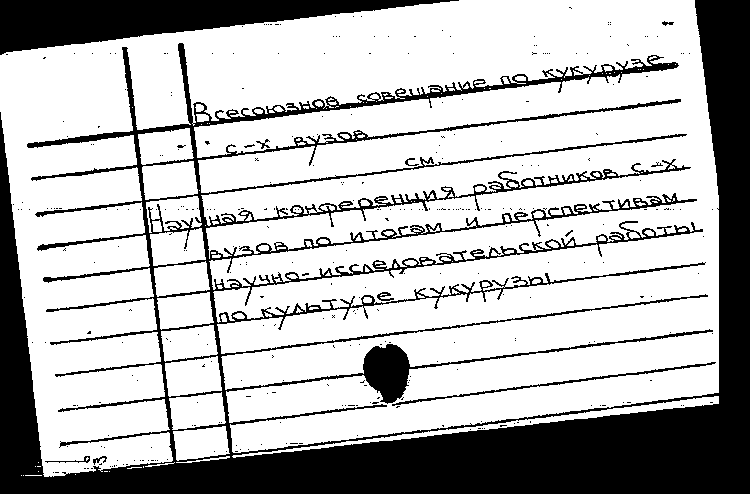 Всесоюзное совещание по кукурузе
с.-х. вузов
см.
Научная конференция работников с.-х.
вузов по итогам и перспективам
научно-исследовательской работы
по культуре кукурузы